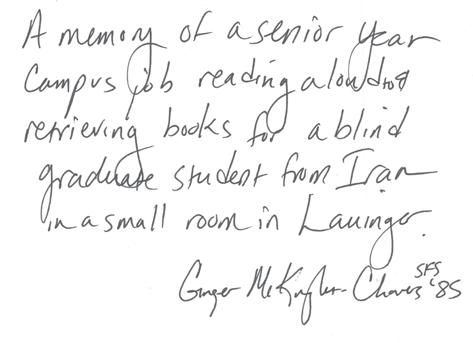 A memory of a senior year
Campus job reading aloud to &
retrieving books for a blind
graduate student from Iran
in a small room in Lauinger.
Ginger McKnight-Chavers SFS '85